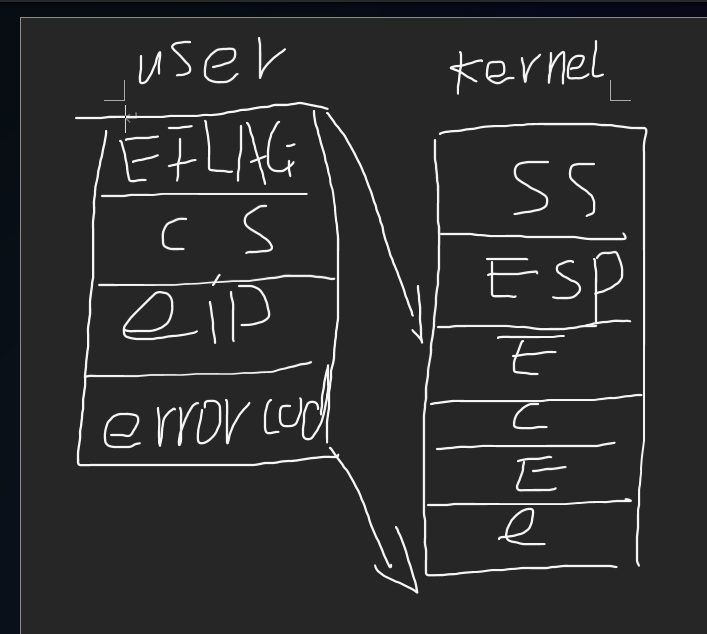 user
EFLAG
CS
eip
error cod
kernel
SS
ESP
E
C
E
e